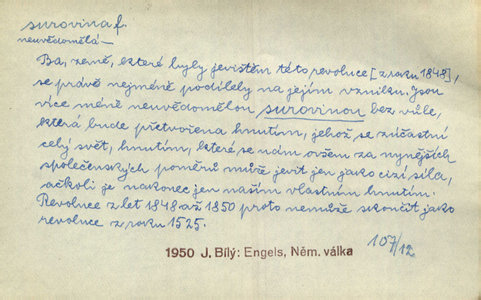 surovina f.
neuvědomělá –
Ba, země, které byly jevištěm této revoluce [z roku 1848],
se právě nejméně podílely na jejím vzniku. Jsou
více méně neuvědomělou surovinou bez vůle,
která bude přetvořena hnutím, jehož se zúčastní
celý svět, hnutím, které se nám ovšem za nynějších
společenských poměrů může jevit jen jako cizí síla,
ačkoli je nakonec jen naším vlastním hnutím.
Revoluce z let 1848 až 1850 proto nemůže skončit jako
revoluce z roku 1525.
107/12
1950 J. Bílý: Engels, Něm. válka